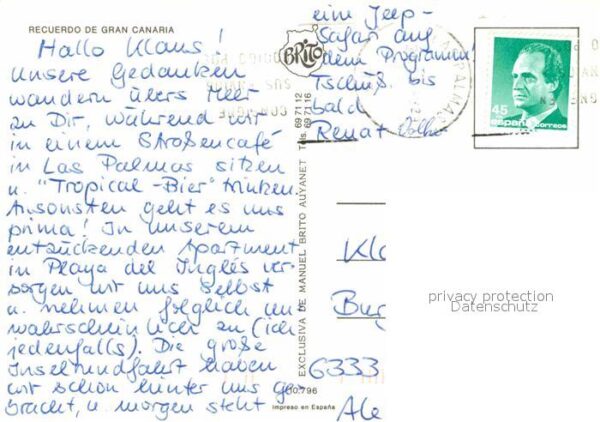 RECUERDO DE GRAN CANARIA
Hallo Klaus!
Unsere Gedanken
wandern übers Meer
zu Dir, während wir
in einem Straßencafé
in Las Palmas sitzen
u. "Tropical-Bier" trinken.
Ansonsten geht es uns
prima! In unserem
entzückenden Apartment
in Playa del Inglés ver-
sorgen wir uns selbst
u. nehmen folglich un-
wahrscheinlich zu (ich
jedenfalls). Die große
Inselrundfahrt haben
wir schon hinter uns ge-
bracht, u. morgen steht
eine Jeep-
Safari auf
dem Programm!
Tschüß bis
bald
Renate
BRITO
Tels. 69 71 12
69 71 16
EXCLUSIVA DE MANUEL BRITO AUYANET
Impreso en España
PALMAS
45
españa
correos
Kla
Bur
6333
privacy protection
Datenschutz